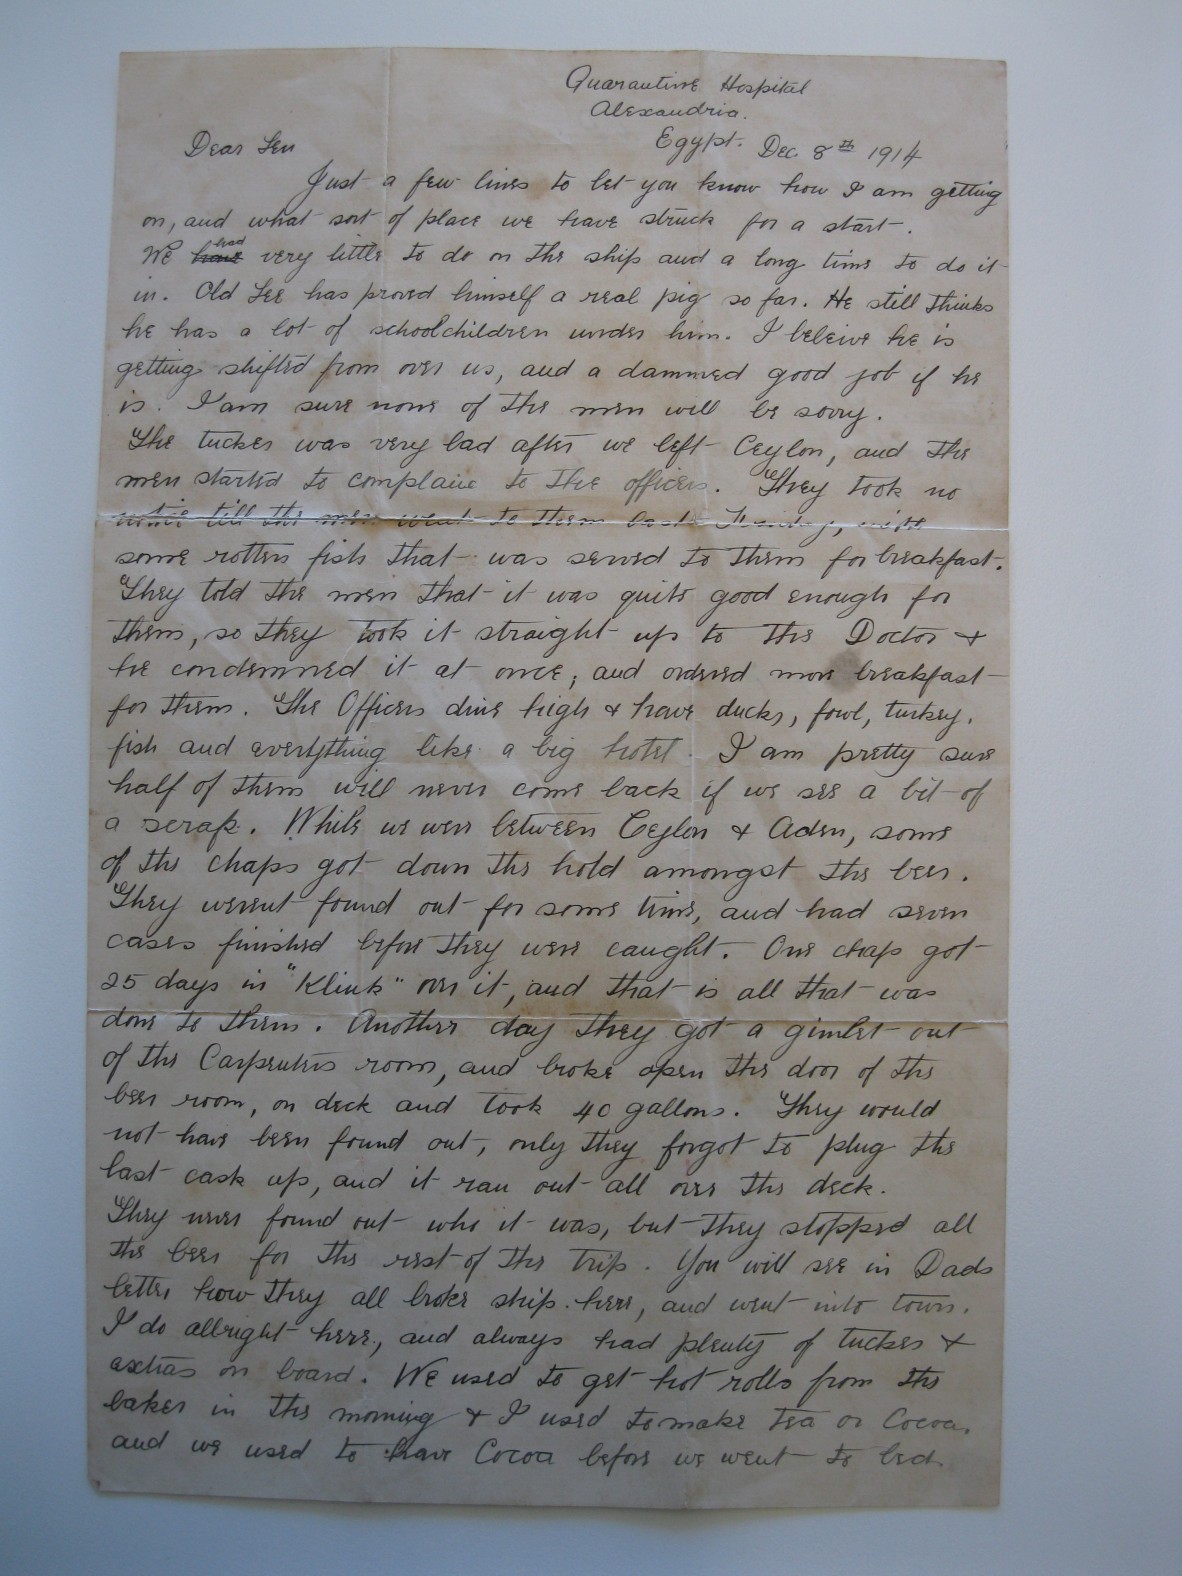 Quarantine Hospital
Alexandria.
Egypt. Dec. 8th 1914
Dear Len
Just a few lines to let you know how I am getting
on, and what sort of place we have struck for a start.
We have had very little to do on the ship and a long time to do it
in. Old Lee has proved himself a real pig so far. He still thinks
he has a lot of schoolchildren under him. I beleive he is
getting shifted from over us, and a dammed good job if he
is. I am sure none of the men will be sorry.
The tucker was very bad after we left Ceylon, and the
men started to complain to the officers. They took no
notice till the men went to them last Sunday, with
some rotten fish that was served to them for breakfast.
They told the men that it was quite good enough for
them, so they took it straight up to the Doctor &
he condemned it at once, and ordered more breakfast
for them. The Officers dine high & have ducks, fowl, turkey,
fish and everything like a big hotel. I am pretty sure
half of them will never come back if we see a bit of
a scrap. While we were between Ceylon & Aden, some
of the chaps got down the hold amongst the beer.
They werent found out for some time, and had seven
cases finished before they were caught. One chap got
25 days in "Klink" over it, and that is all that was
done to them. Another day they got a gimlet out
of the Carpenters room, and broke open the door of the
beer room, on deck and took 40 gallons. They would
not have been found out, only they forgot to plug the
last cask up, and it ran out all over the deck.
They never found out who it was, but they stopped all
the beer for the rest of the trip. You will see in Dads
letter how they all broke ship here, and went into town.
I do allright here, and always had plenty of tucker &
extras on board. We used to get hot rolls from the
baker in the morning & I used to make tea or Cocoa,
and we used to have Cocoa before we went to bed.